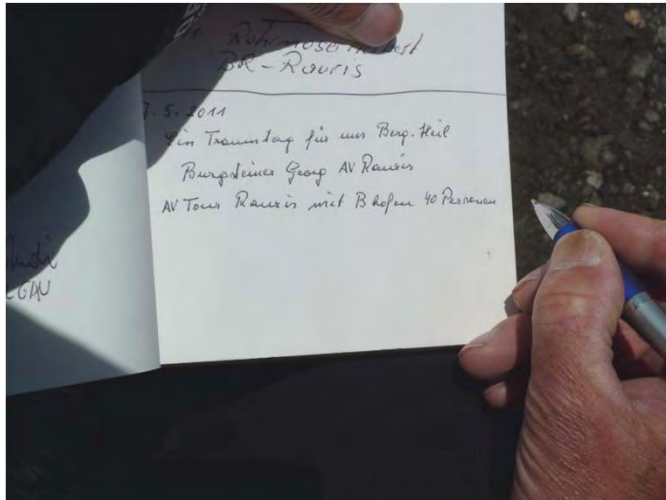 BR - Rauris
7.5.2011
Ein Traumtag für uns Berg-Heil
Burgsteiner Georg AV Rauris
AV Tour Rauris mit B hofen 40 Personen